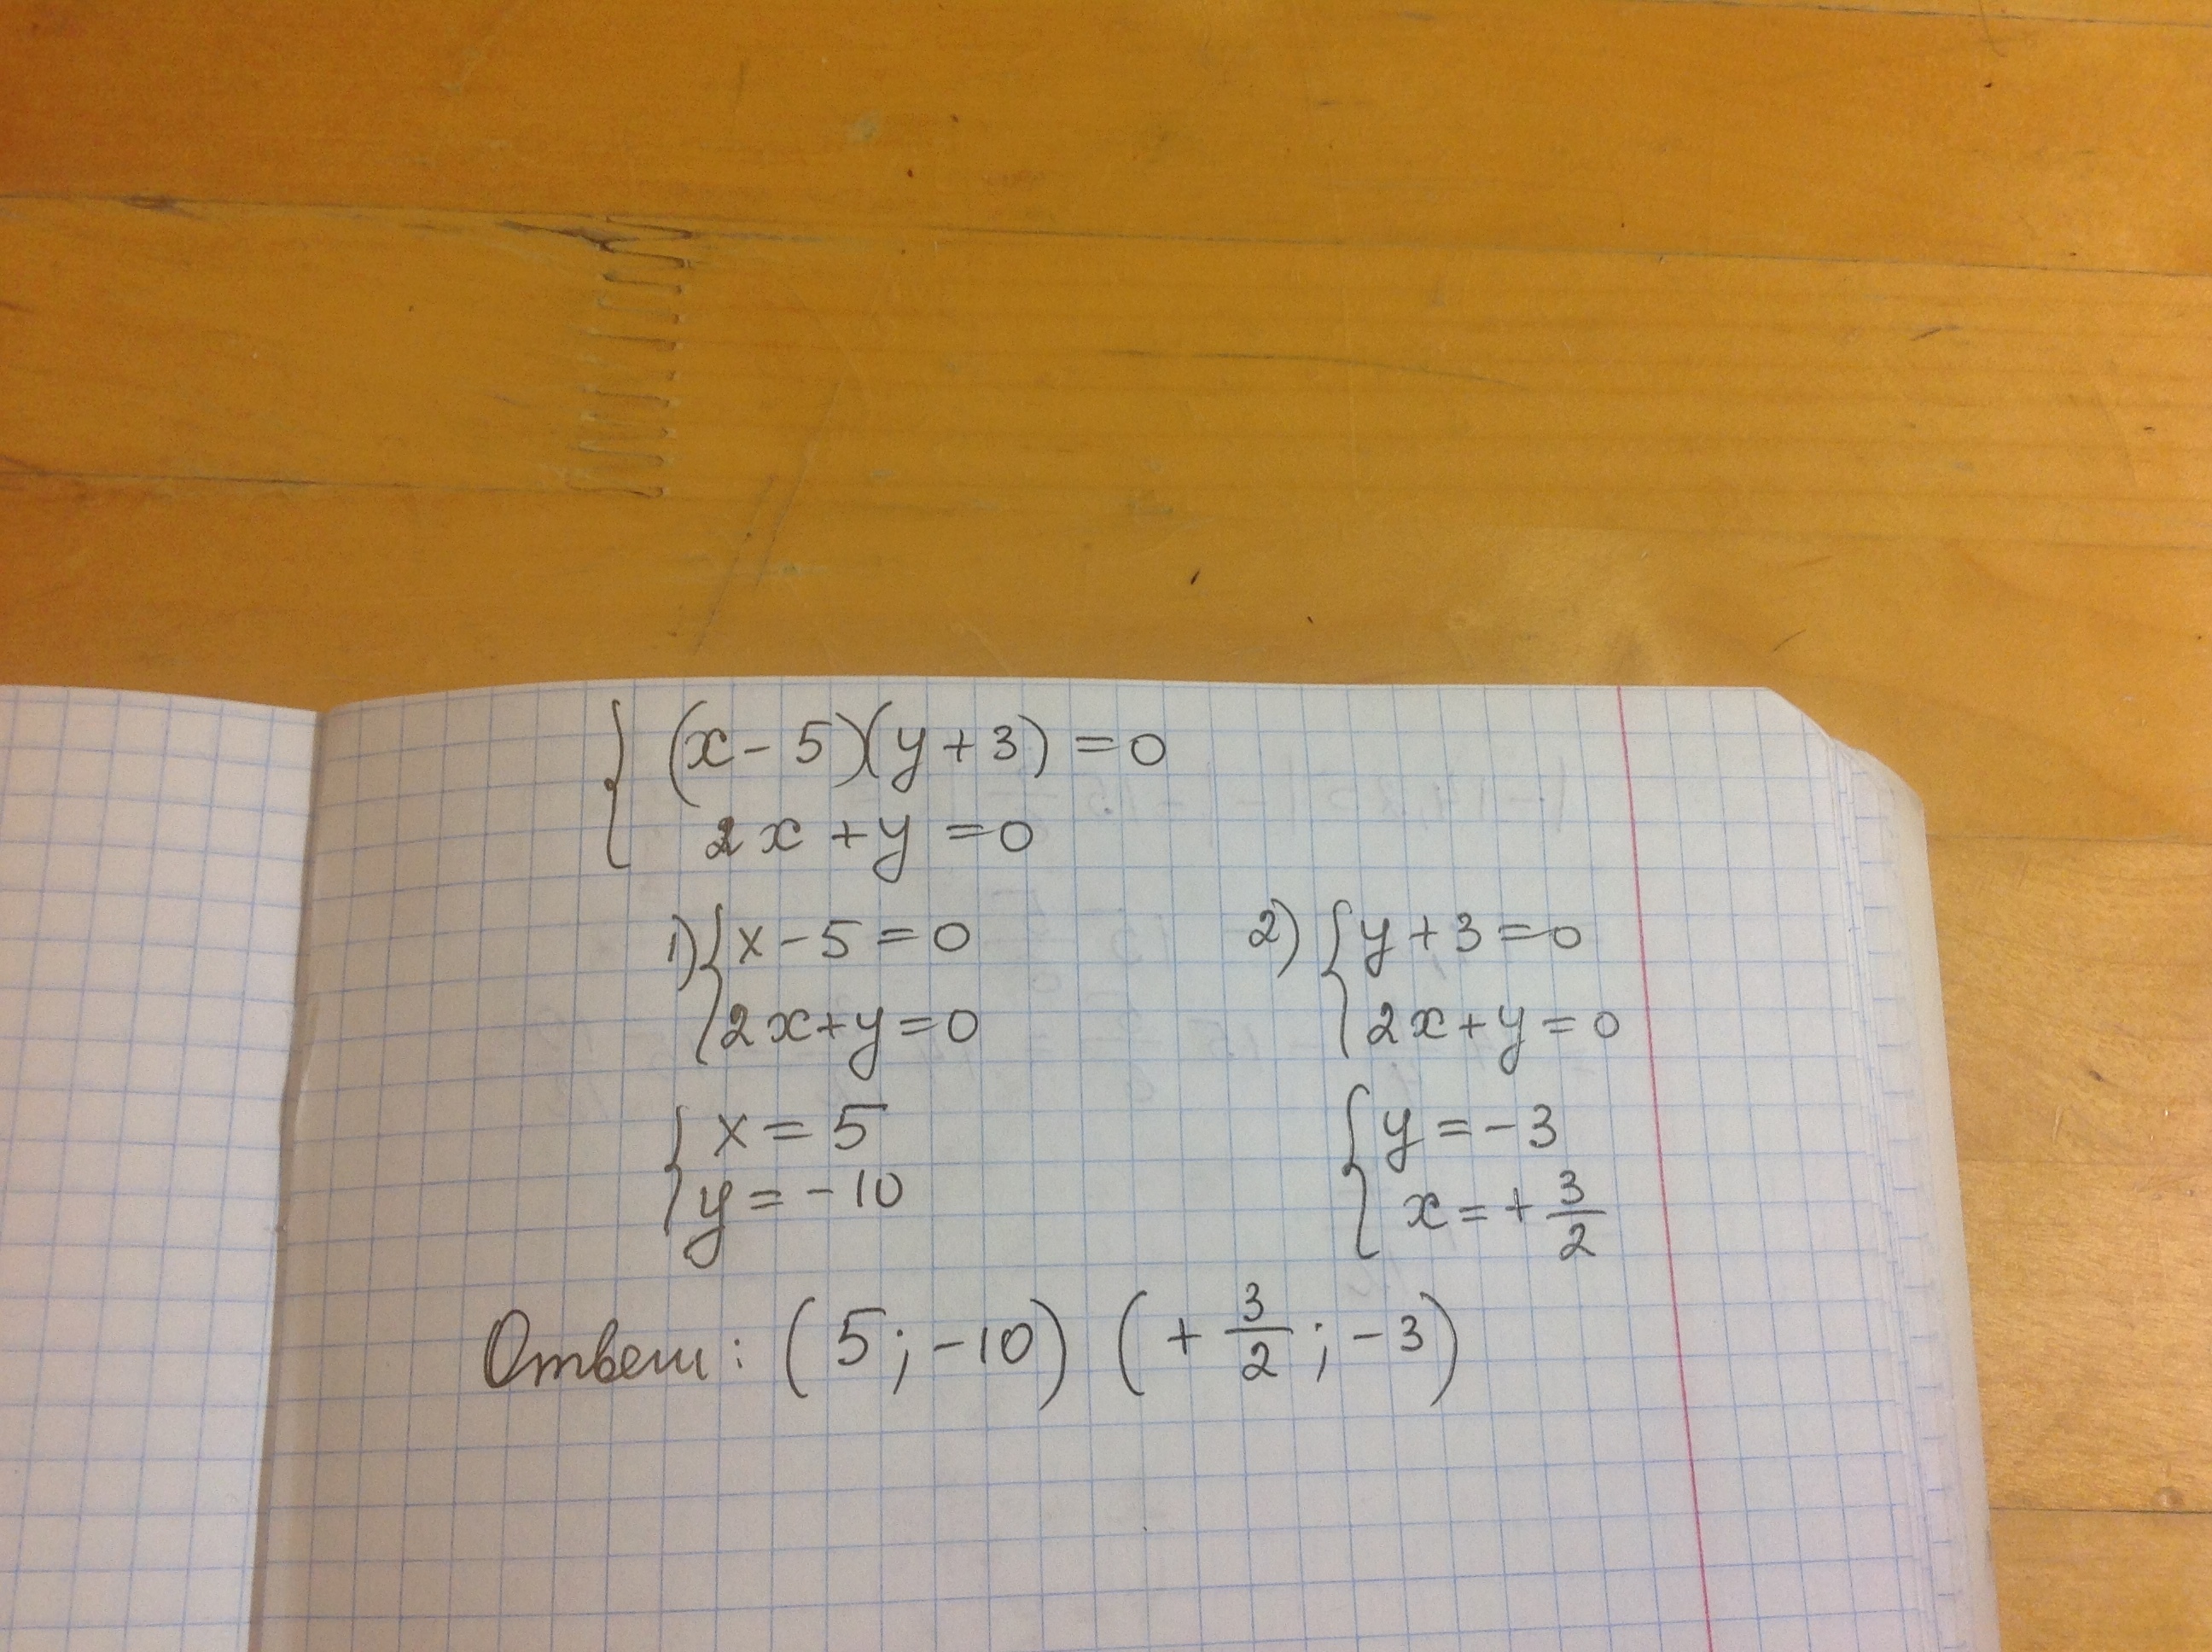 { (x-5)(y+3)=0
2x+y=0
1) { x-5=0
2x+y=0
{ x=5
y=-10
2) { y+3=0
2x+y=0
{ y=-3
x=+3/2
Ответ: (5;-10) (+3/2;-3)